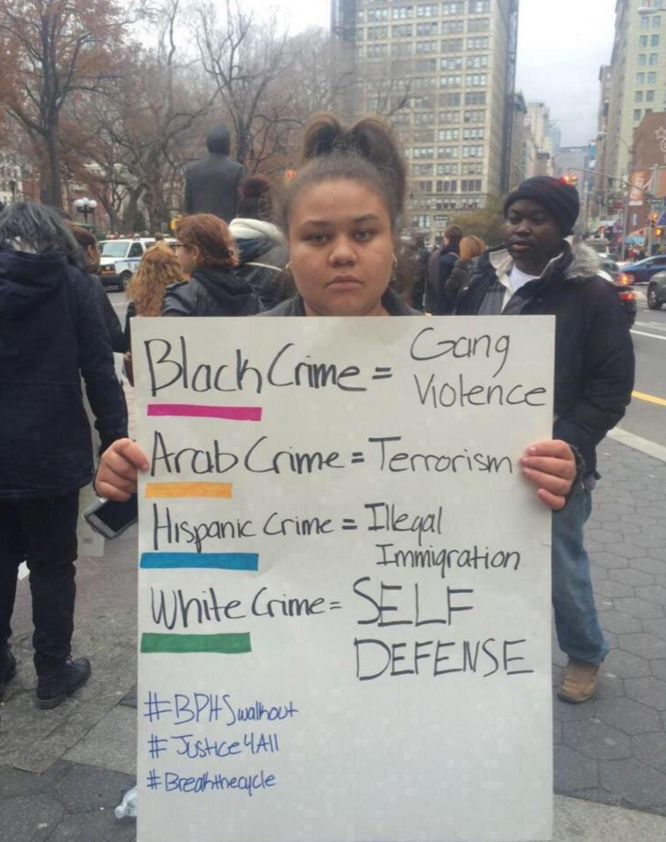 Black Crime = Gang
Violence
Arab Crime = Terrorism
Hispanic Crime = Illegal
Immigration
White Crime = SELF
DEFENSE
#BPHSwalkout
#Justice4All
#Breakthecycle